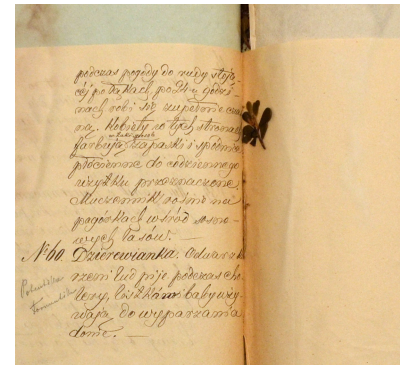 podczas pogody do rudy stoją-
cej po łąkach, po 24 godzi-
nach robi się zupełnie czar-
na. Kobiety w tych stronach
farbują zapaski i spódnice
płócienne do codziennego
użytku przeznaczone
Mucznnik rośnie na
pagórkach wśród sosno-
wych lasów. —
№ 60. Dzierewianka. Odwar z k
rzeni lud pije podczas cho-
lery, liśćkami baby uży-
wają do wyparzania
Potentilla
Tormentilla